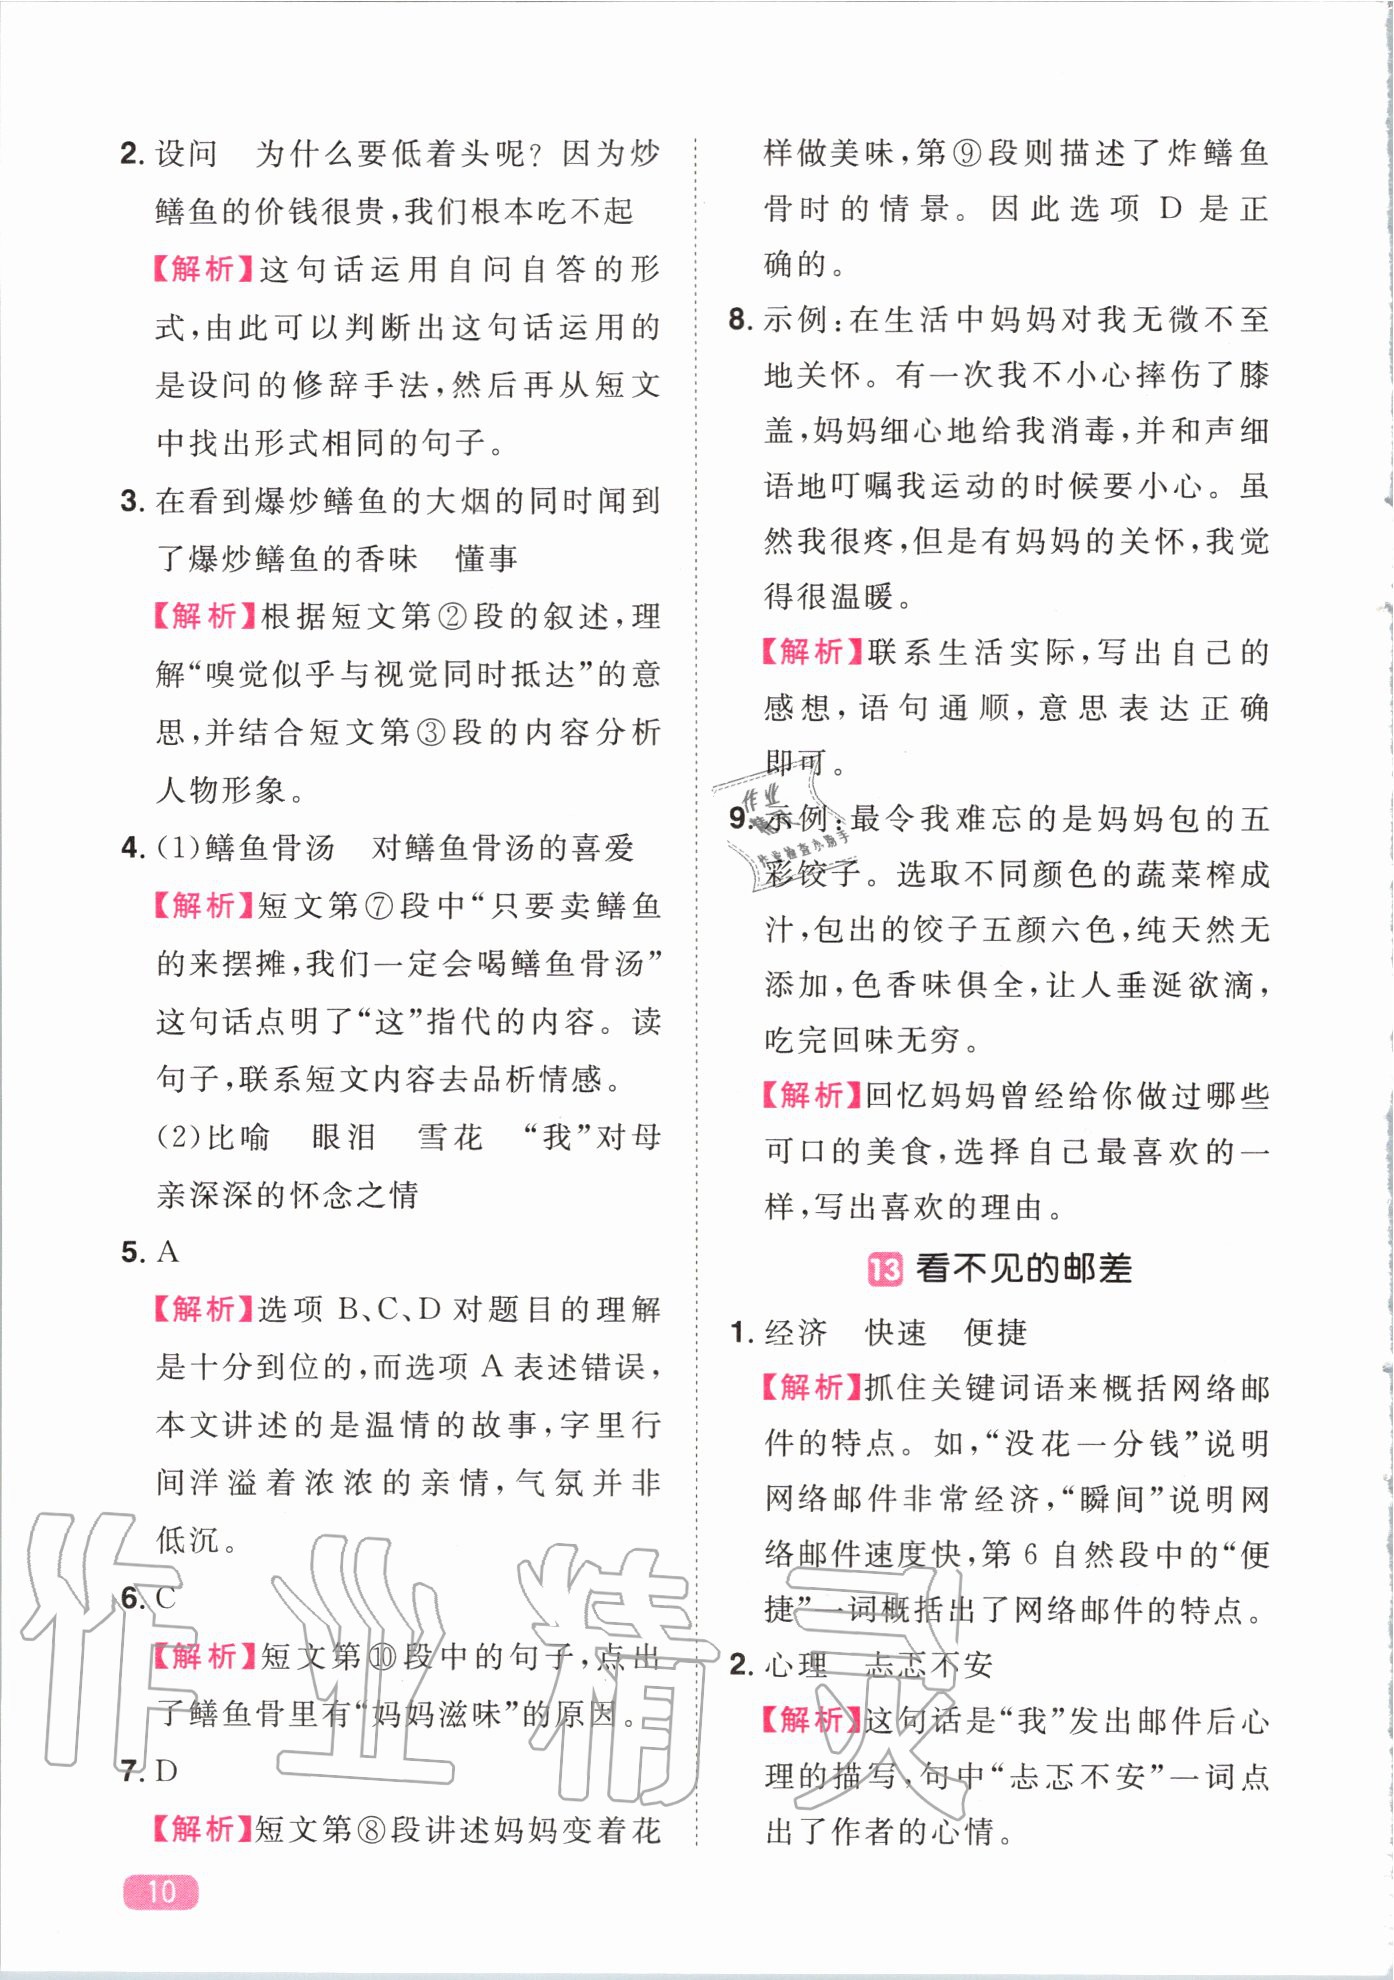 2. 设问　为什么要低着头呢？因为炒
鳝鱼的价钱很贵，我们根本吃不起
【解析】这句话运用自问自答的形
式，由此可以判断出这句话运用的
是设问的修辞手法，然后再从短文
中找出形式相同的句子。
3. 在看到爆炒鳝鱼的大烟的同时闻到
了爆炒鳝鱼的香味　懂事
【解析】根据短文第②段的叙述，理
解“嗅觉似乎与视觉同时抵达”的意
思，并结合短文第③段的内容分析
人物形象。
4. (1)鳝鱼骨汤　对鳝鱼骨汤的喜爱
【解析】短文第⑦段中“只要卖鳝鱼
的来摆摊，我们一定会喝鳝鱼骨汤”
这句话点明了“这”指代的内容。读
句子，联系短文内容去品析情感。
(2)比喻　眼泪　雪花　“我”对母
亲深深的怀念之情
5. A
【解析】选项 B、C、D 对题目的理解
是十分到位的，而选项 A 表述错误，
本文讲述的是温情的故事，字里行
间洋溢着浓浓的亲情，气氛并非
低沉。
6. C
【解析】短文第⑩段中的句子，点出
了鳝鱼骨里有“妈妈滋味”的原因。
7. D
【解析】短文第⑧段讲述妈妈变着花
样做美味，第⑨段则描述了炸鳝鱼
骨时的情景。因此选项 D 是正
确的。
8. 示例：在生活中妈妈对我无微不至
地关怀。有一次我不小心摔伤了膝
盖，妈妈细心地给我消毒，并和声细
语地叮嘱我运动的时候要小心。虽
然我很疼，但是有妈妈的关怀，我觉
得很温暖。
【解析】联系生活实际，写出自己的
感想，语句通顺，意思表达正确
即可。
9. 示例：最令我难忘的是妈妈包的五
彩饺子。选取不同颜色的蔬菜榨成
汁，包出的饺子五颜六色，纯天然无
添加，色香味俱全，让人垂涎欲滴，
吃完回味无穷。
【解析】回忆妈妈曾经给你做过哪些
可口的美食，选择自己最喜欢的一
样，写出喜欢的理由。
13 看不见的邮差
1. 经济　快速　便捷
【解析】抓住关键词语来概括网络邮
件的特点。如，“没花一分钱”说明
网络邮件非常经济，“瞬间”说明网
络邮件速度快，第 6 自然段中的“便
捷”一词概括出了网络邮件的特点。
2. 心理　忐忑不安
【解析】这句话是“我”发出邮件后心
理的描写，句中“忐忑不安”一词点
出了作者的心情。
10
作业精灵
作业
精灵
作业检查小助手